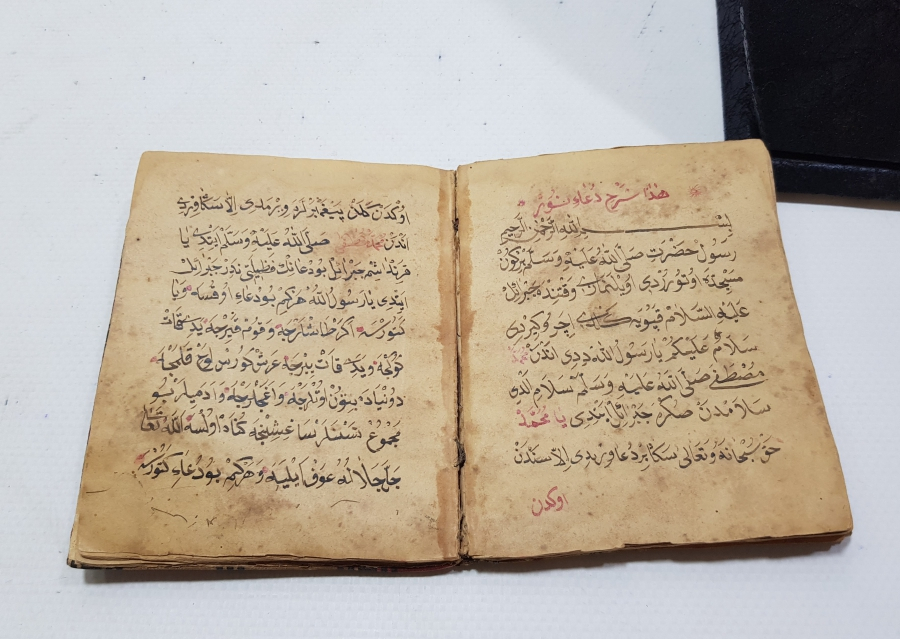 هذا شرح دعاء نور
بسم الله الرحمن الرحيم
رسول حضرت صلى الله عليه وسلم بركون
مسجده اوتورردى اويله نمازى وقتنده جبرائل
عليه السلام قپويه كلدى ايچرو كيردى
سلام عليكم يا رسول الله ددى اندن محمد
مصطفى صلى الله عليه وسلم سلام الدى
سلامدن صكره جبرائل ايتدى يا محمد
حق سبحانه وتعالى سكا بر دعا ويربدى الا سندن
اوكدن
اوكدن كلن پيغمبرلره ويرمدى الا سكا ويردى
اندن محمد مصطفى صلى الله عليه وسلم ايتدى يا
قرنداشم جبرائل بو دعانك فضيلتى ندر جبرائل
ايتدى يا رسول الله هركم بو دعاء اوقسه ويا
كتورسه اكر طاشلرجه وقوملرجه يدى قات
كوكجه ويدى قات يرجه عرش كورس لوح قلمجه
دنياده بتون اوتلرجه واغاجلرجه وادميلر بو
مجموع نسنلر نسا عشنجه كناه اولسه الله تعالى
جل جلاله عوف ايليه وهركم بو دعاء كتورسه